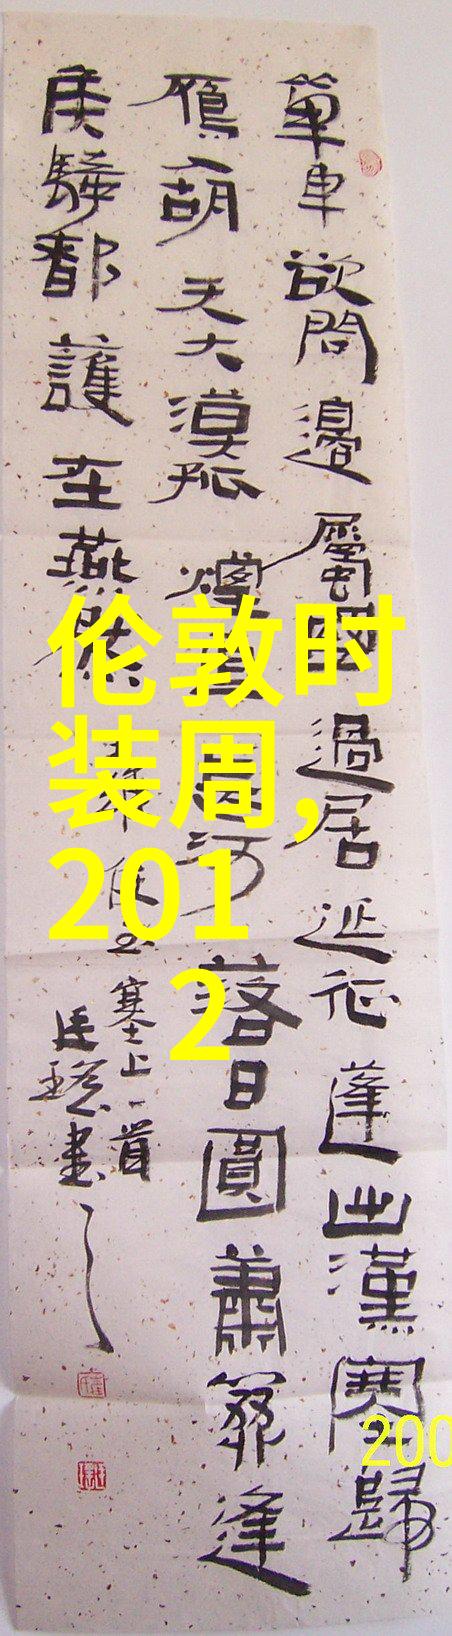 單車欲問邊屬國過居延征蓬出漢塞歸
鴈入胡天大漠孤煙直長河落日圓蕭關逢
候騎都護在燕然
王維使至塞上一首
書
伦敦时
装周,
201
2
200